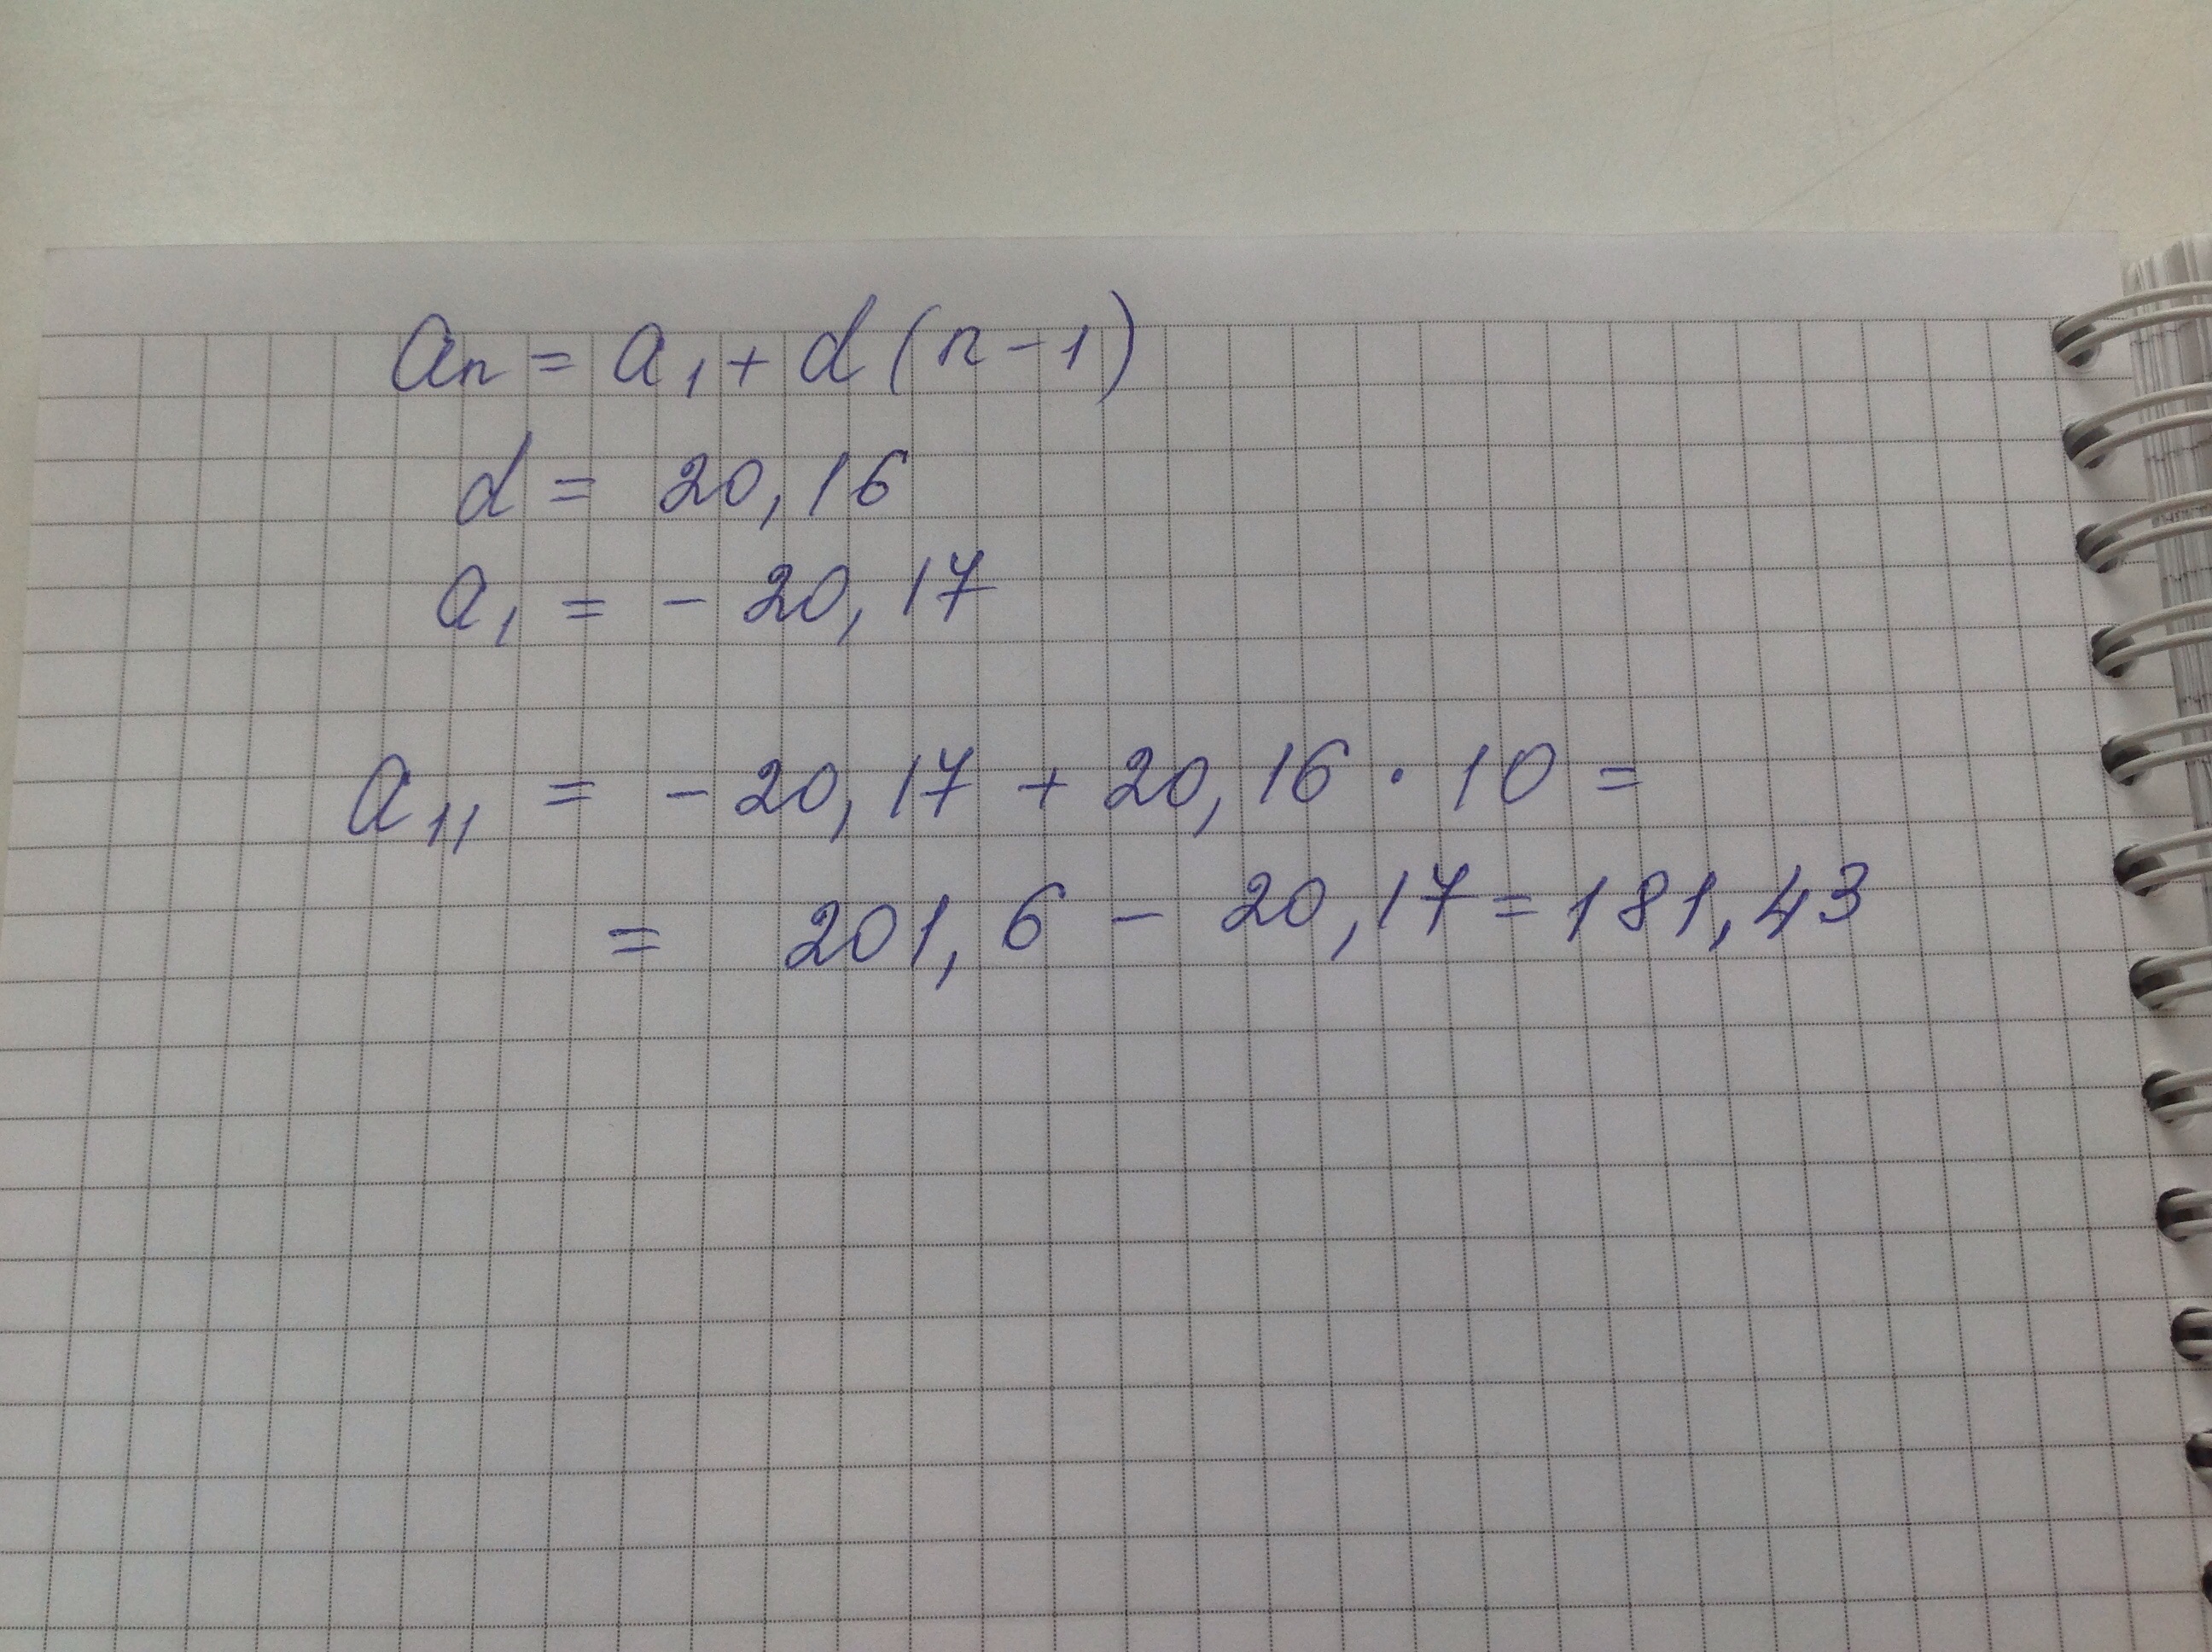 an = a1 + d (n - 1)
d = 20,16
a1 = - 20,17
a11 = - 20,17 + 20,16 · 10 =
= 201,6 - 20,17 = 181,43